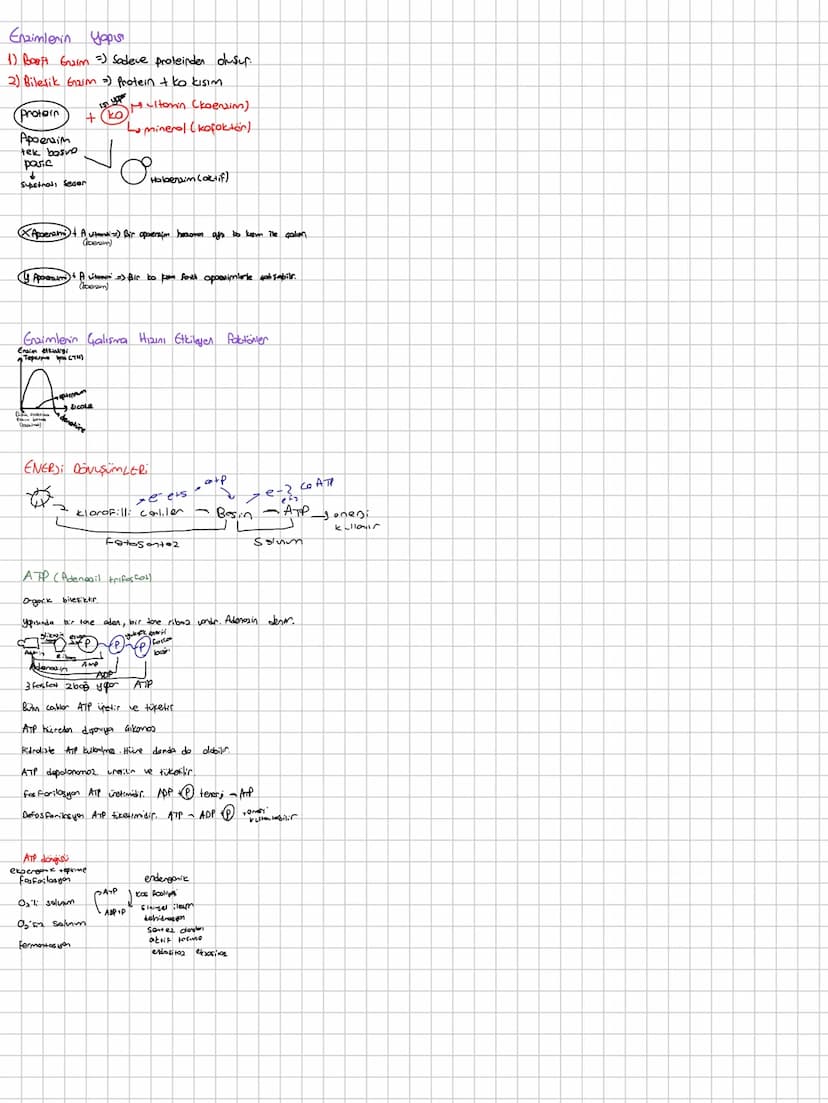 Enzimlerin Yapısı
1) Basit Enzim => Sadece proteinden oluşur.
2) Bileşik Enzim => Protein + Ko kısım
Protein + ko → vitamin (koenzim)
↳ mineral (kofaktör)
Apoenzim
tek başına
pasif
↓
Substratı seçer
Holoenzim (aktif)
X Apoenzimi + A vitamini => Bir apoenzim her zaman aynı ko kısım ile çalışır.
(koenzim)
Y Apoenzimi + A vitamini => Bir ko kısım farklı apoenzimlerle çalışabilir.
(koenzim)
Enzimlerin Çalışma Hızını Etkileyen Faktörler
Enzim etkinliği
Tepkime hızı (TH)
optimum
sıcak
ENERJİ DÖNÜŞÜMLERİ
e- ets → ATP
e- ets ATP
Klorofilli canlılar → Besin → ATP → enerji
kullanır
Fotosentez
Solunum
ATP (Adenozil trifosfat)
Organik bileşiktir.
Yapısında bir tane aden, bir tane riboz vardır. Adenozin denir.
yüksek enerjili
fosfat
bağı
P P P
Adenin
Riboz
AMP
Adenozin
ADP
3 fosfat 2 bağ yapar ATP
Bütün canlılar ATP üretir ve tüketir
ATP hücreden dışarıya çıkamaz
Hidrolizde ATP kullanılmaz. Hücre dışında da olabilir.
ATP depolanamaz üretilir ve tüketilir.
Fosforilasyon ATP üretimidir. ADP + P + enerji → ATP
Defosforilasyon ATP tüketimidir. ATP → ADP + P + enerji
kullanılabilir
ATP döngüsü
ekzergonik tepkime
Fosforilasyon
O₂'li solunum
O₂'siz solunum
Fermantasyon
ATP
ADP+P
endergonik
kas faaliyeti
sinirsel iletim
dehidrasyon
sentez olayları
aktif taşıma
endositoz ekzositoz